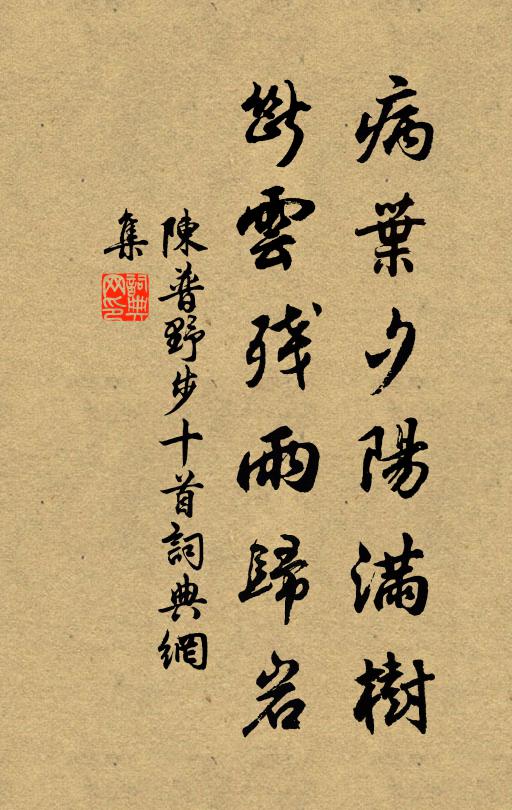 病葉夕陽滿樹
斷雲殘雨歸岩
陳普野步十首詞典網
集
詞典
网印